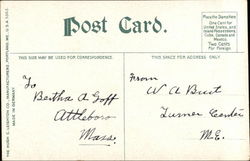 Post Card.
Place the Stamp here
One Cent for
United States and
Island Possessions,
Cuba, Canada and
Mexico.
Two Cents
for Foreign
THIS SIDE MAY BE USED FOR CORRESPONDENCE.
THIS SPACE FOR ADDRESS ONLY.
To
Bertha A Goff
Attleboro
Mass.
From
W A Burt
Turner Center
M.E.
MADE IN GERMANY.